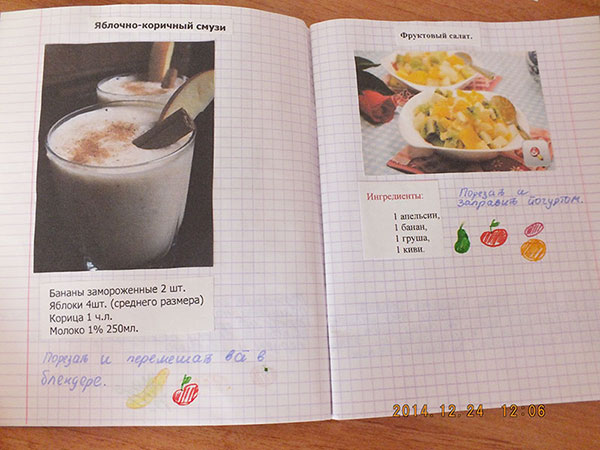 Яблочно-коричный смузи
Бананы замороженные 2 шт.
Яблоки 4шт. (среднего размера)
Корица 1 ч.л.
Молоко 1% 250мл.
Порезать и перемешать всё в
блендере.
Фруктовый салат.
Ингредиенты:
1 апельсин,
1 банан,
1 груша,
1 киви.
Порезать и
заправить йогуртом.
2014.12.24 12:06